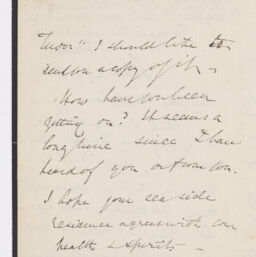 I should like to
send on a copy of it.
How have you been
getting on? It seems a
long time since I have
heard of you or from you.
I hope your sea side
residence agrees with your
health & spirits —